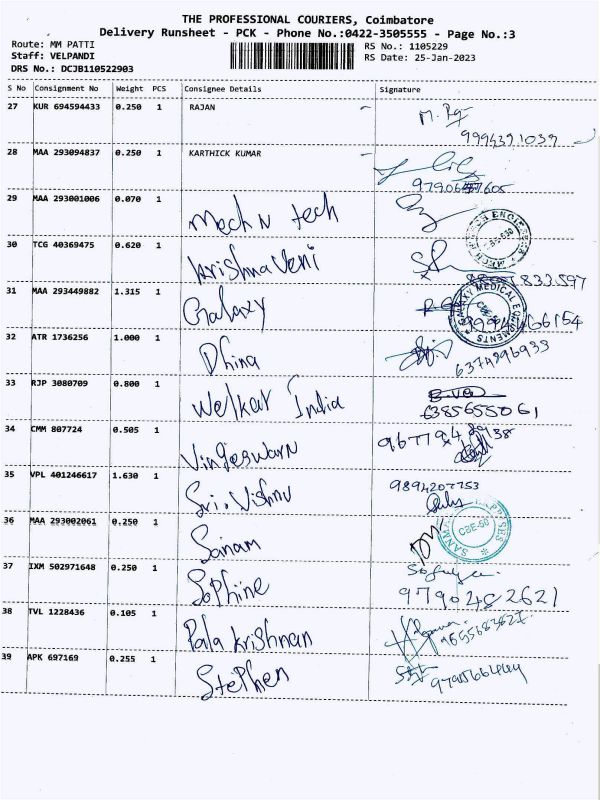 THE PROFESSIONAL COURIERS, Coimbatore
Delivery Runsheet - PCK - Phone No.:0422-3505555 - Page No.:3
Route: MM PATTI RS No.: 1105229
Staff: VELPANDI RS Date: 25-Jan-2023
DRS No.: DCJB110522903
S No Consignment No Weight PCS Consignee Details Signature
27 KUR 694594433 0.250 1 RAJAN
9994391039
28 MAA 293094837 0.250 1 KARTHICK KUMAR
29 MAA 293001006 0.070 1 Mech N tech
30 TCG 40369475 0.620 1 Krishnaveni
31 MAA 293449882 1.315 1 Galaxy
GALAXY MEDICAL EQUIPMENTS
32 ATR 1736256 1.000 1 Dhina
6374896933
33 RJP 3080709 0.800 1 Welkar India
6385655061
34 CMM 807724 0.505 1 Vingeswarn
35 VPL 401246617 1.630 1 Sri. Vishnu
9894207753
36 MAA 293002061 0.250 1 Sanam
CBE-66
37 IXM 502971648 0.250 1 Sophine
9790482621
38 TVL 1228436 0.105 1 Pala Krishnan
39 APK 697169 0.255 1 Stephen